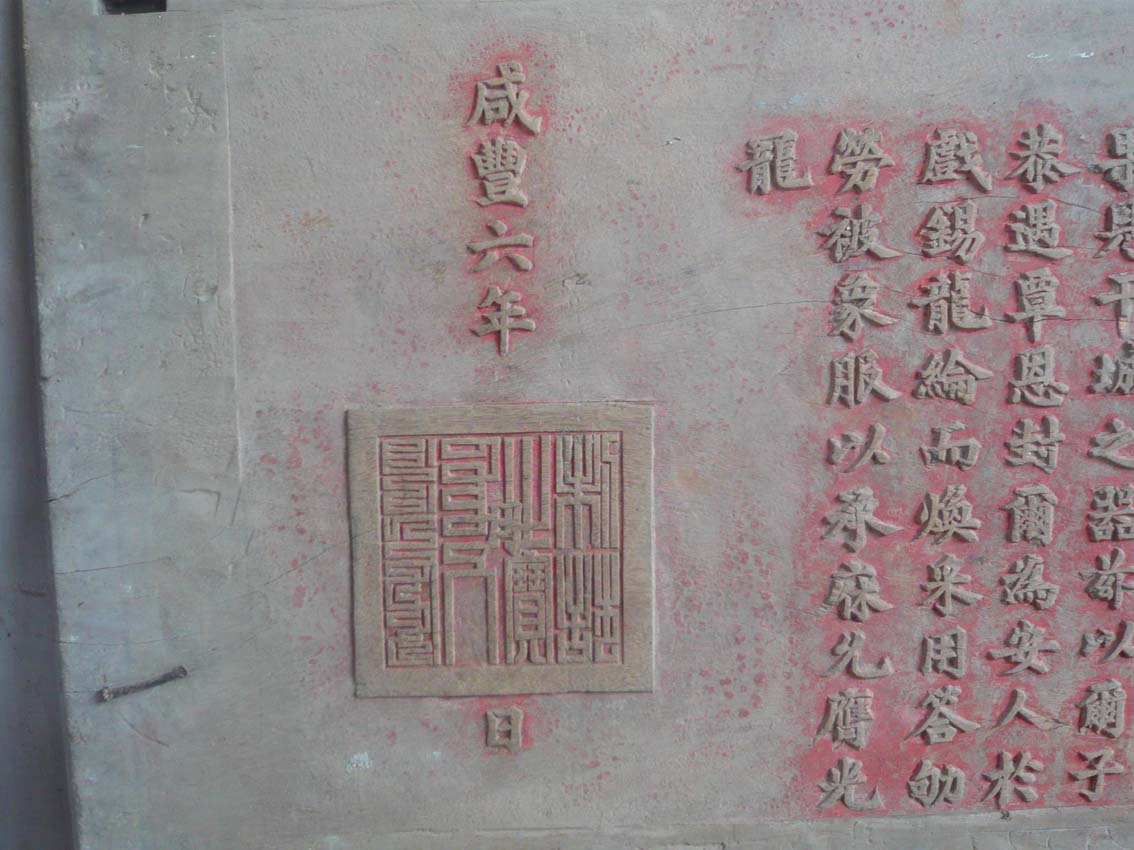 果見干城之器茲以爾子
恭遇覃恩封爾為安人於
戲錫龍綸而煥采用答劬
勞被象服以承庥允膺光
龍
咸豐六年
日